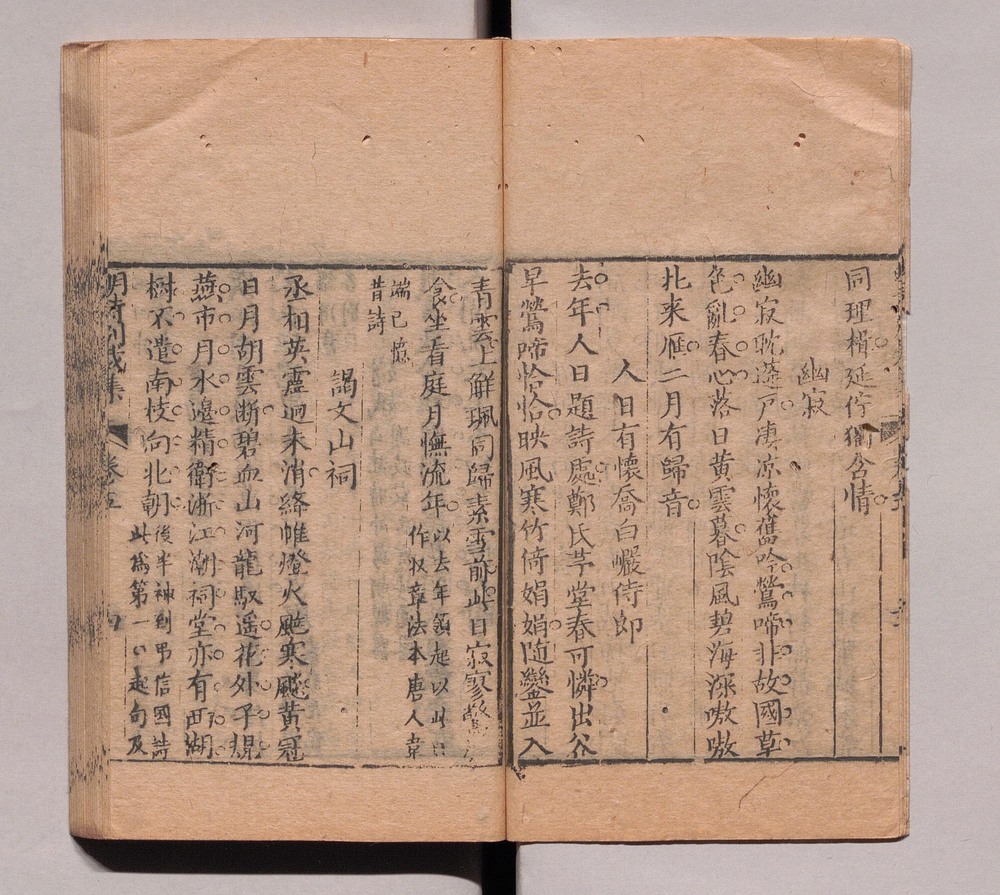 同理楫延佇獨含情
幽寂
幽寂耽蓬戸凄凉懷舊吟鶯啼非故國草
色亂春心落日黄雲暮陰風碧海深嗷嗷
北来鴈二月有歸音
人日有懷喬白巖侍郎
去年人日題詩處鄭氏芋堂春可憐出谷
早鶯啼恰恰映風寒竹倚娟娟隨鑾並入
青雲上解珮同歸素雪前此日寂寥驚
食坐看庭月憮流年以去年領起以此日
作收章法本唐人韋
端己憶
昔詩
謁文山祠
丞相英靈迥未消絳帷燈火颯寒飈黄冠
日月胡雲断碧血山河龍馭遥花外子規
燕市月水邊精衛浙江潮祠堂亦有西湖
樹不遣南枝向北朝後半神到弔信國詩
此為第一起句及
明詩别裁集 卷五